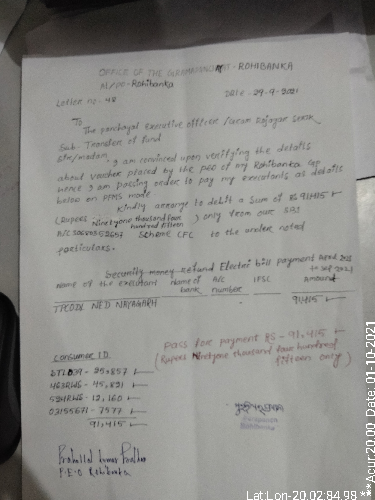 OFFICE OF THE GRAMAPANCHAYAT - ROHIBANKA
At/Po - Rohibanka
Letter no - 48
Date - 29-9-2021
To
The panchayat Executive officer
Sub - Transfer of fund
Sir/madam, I am convinced upon verifying the details
about voucher placed by the peo of my Rohibanka Gp
hence I am passing order to pay my executants as details
below on PFMS mode.
Kindly arrange to debit a sum of RS 91415
(Rupees Ninetyone thousand four hundred fifteen) only from our SBI
A/C Scheme CFC to the under noted
particulars.
Security money refund Electric bill payment April 2021
Name of the executant Name of bank A/C number IFSC Amount
TPCODL NED NAYAGARH 91,415
Pass for payment RS - 91,415
(Rupees Ninetyone thousand four hundred
fifteen only)
Consumer I.D
- 25,857
- 45,821
- 12,160
03155671 - 7577
91,415
Prahallad Kumar Pradhan
P.E.O Rohibanka
Lat:Lon-20.02:84.98***Acur:20.00 Date:01-10-2021